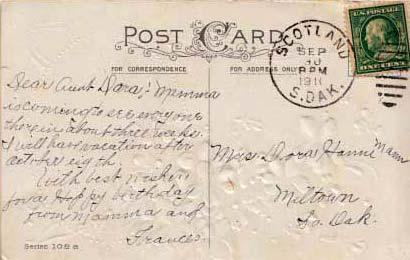 POST CARD
FOR CORRESPONDENCE
FOR ADDRESS ONLY
SCOTLAND
SEP
10
8PM
1911
S.DAK.
U.S. POSTAGE
ONE CENT
Dear Aunt Dora: Mamma
is coming to see every one
there in about three weeks.
I will have vacation after
oct. the eigth.
With best wishes
for a Happy birthday
from Mamma and
Frances.
Mrs Dora Hanni Mann
Miltown
So. Dak.
Series 108 a